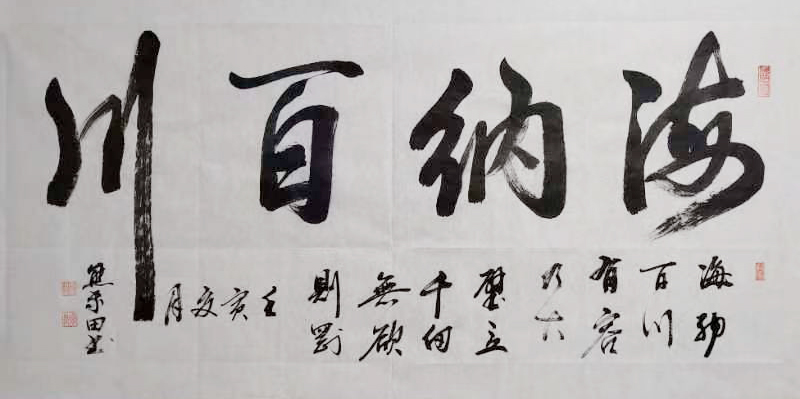 海纳百川
海纳
百川
有容
乃大
壁立
千仞
無欲
則剛
壬
寅
夏
月
田书